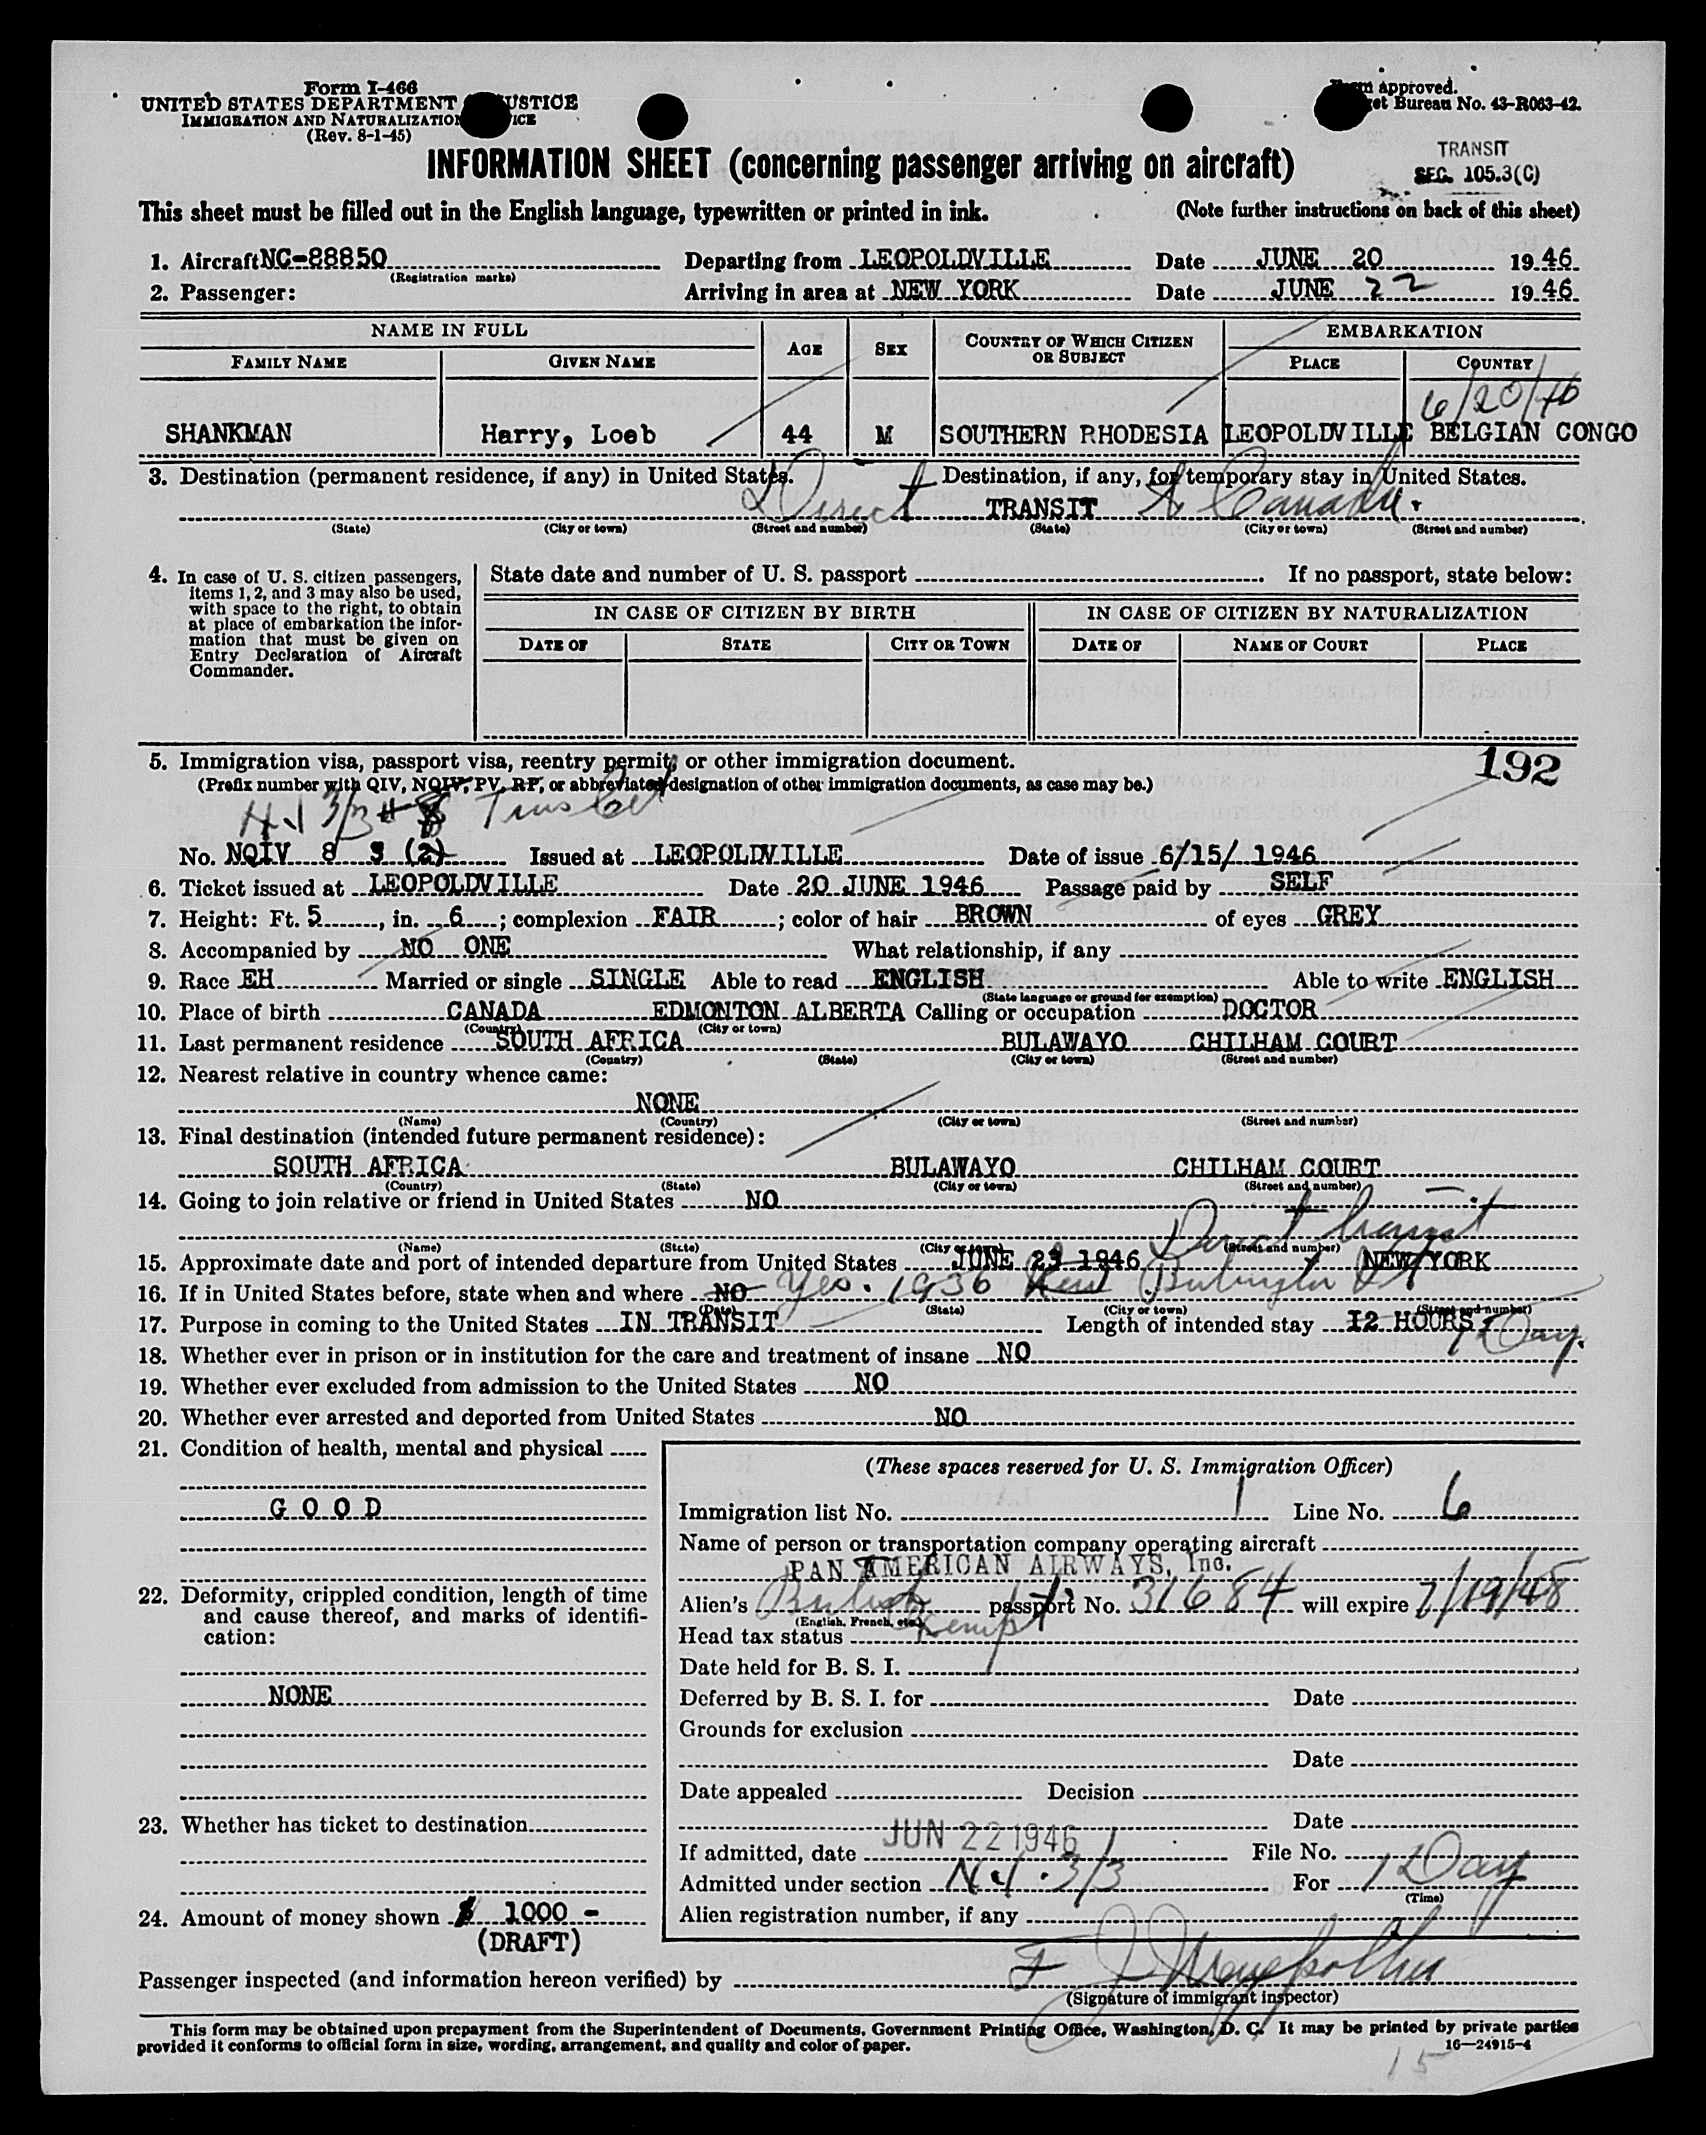 Form I-466
UNITED STATES DEPARTMENT JUSTICE
IMMIGRATION AND NATURALIZATION
(Rev. 8-1-45)
approved.
Bureau No. 43-R063-42.
INFORMATION SHEET (concerning passenger arriving on aircraft)
TRANSIT
SEC. 105.3(C)
This sheet must be filled out in the English language, typewritten or printed in ink. (Note further instructions on back of this sheet)
1. Aircraft NC-88850 Departing from LEOPOLDVILLE Date JUNE 20 19 46
(Registration marks)
2. Passenger: Arriving in area at NEW YORK Date JUNE 22 19 46
NAME IN FULL AGE SEX COUNTRY OF WHICH CITIZEN OR SUBJECT EMBARKATION
FAMILY NAME GIVEN NAME PLACE COUNTRY
6/20/46
SHANKMAN Harry, Loeb 44 M SOUTHERN RHODESIA LEOPOLDVILLE BELGIAN CONGO
3. Destination (permanent residence, if any) in United States. Destination, if any, for temporary stay in United States.
Direct TRANSIT to Canada.
(State) (City or town) (Street and number) (State) (City or town) (Street and number)
4. In case of U. S. citizen passengers, items 1, 2, and 3 may also be used, with space to the right, to obtain at place of embarkation the information that must be given on Entry Declaration of Aircraft Commander.
State date and number of U. S. passport . If no passport, state below:
IN CASE OF CITIZEN BY BIRTH IN CASE OF CITIZEN BY NATURALIZATION
DATE OF STATE CITY OR TOWN DATE OF NAME OF COURT PLACE
192
5. Immigration visa, passport visa, reentry permit, or other immigration document.
(Prefix number with QIV, NQIV, PV, RP, or abbreviated designation of other immigration documents, as case may be.)
3/3
No. NQIV 8 3 (2) Issued at LEOPOLDVILLE Date of issue 6/15/ 1946
6. Ticket issued at LEOPOLDVILLE Date 20 JUNE 1946 Passage paid by SELF
7. Height: Ft. 5, in. 6; complexion FAIR; color of hair BROWN of eyes GREY
8. Accompanied by NO ONE What relationship, if any
9. Race EH Married or single SINGLE Able to read ENGLISH Able to write ENGLISH
(State language or ground for exemption)
10. Place of birth CANADA EDMONTON ALBERTA Calling or occupation DOCTOR
(Country) (City or town)
11. Last permanent residence SOUTH AFRICA BULAWAYO CHILHAM COURT
(Country) (State) (City or town) (Street and number)
12. Nearest relative in country whence came:
NONE
(Name) (Country) (City or town) (Street and number)
13. Final destination (intended future permanent residence):
SOUTH AFRICA BULAWAYO CHILHAM COURT
(Country) (State) (City or town) (Street and number)
14. Going to join relative or friend in United States NO
Direct transit
(Name) (State) (City or town) (Street and number)
15. Approximate date and port of intended departure from United States JUNE 23 1946 NEW YORK
16. If in United States before, state when and where NO Yes. 1936 Burlington Vt
(Date) (State) (City or town) (Street and number)
17. Purpose in coming to the United States IN TRANSIT Length of intended stay 12 HOURS 1 Day.
18. Whether ever in prison or in institution for the care and treatment of insane NO
19. Whether ever excluded from admission to the United States NO
20. Whether ever arrested and deported from United States NO
21. Condition of health, mental and physical
GOOD
22. Deformity, crippled condition, length of time and cause thereof, and marks of identification:
NONE
23. Whether has ticket to destination
24. Amount of money shown $ 1000 -
(DRAFT)
(These spaces reserved for U. S. Immigration Officer)
Immigration list No. 1 Line No. 6
Name of person or transportation company operating aircraft
PAN AMERICAN AIRWAYS, Inc.
Alien's British passport No. 31684 will expire 7/19/48
(English, French, etc.)
Head tax status Exempt
Date held for B. S. I.
Deferred by B. S. I. for Date
Grounds for exclusion
Date
Date appealed Decision
Date
If admitted, date JUN 22 1946 File No.
Admitted under section 3/3 For 1 Day
(Time)
Alien registration number, if any
Passenger inspected (and information hereon verified) by
(Signature of immigrant inspector)
This form may be obtained upon prepayment from the Superintendent of Documents, Government Printing Office, Washington, D. C. It may be printed by private parties
provided it conforms to official form in size, wording, arrangement, and quality and color of paper. 16—24915-4
15